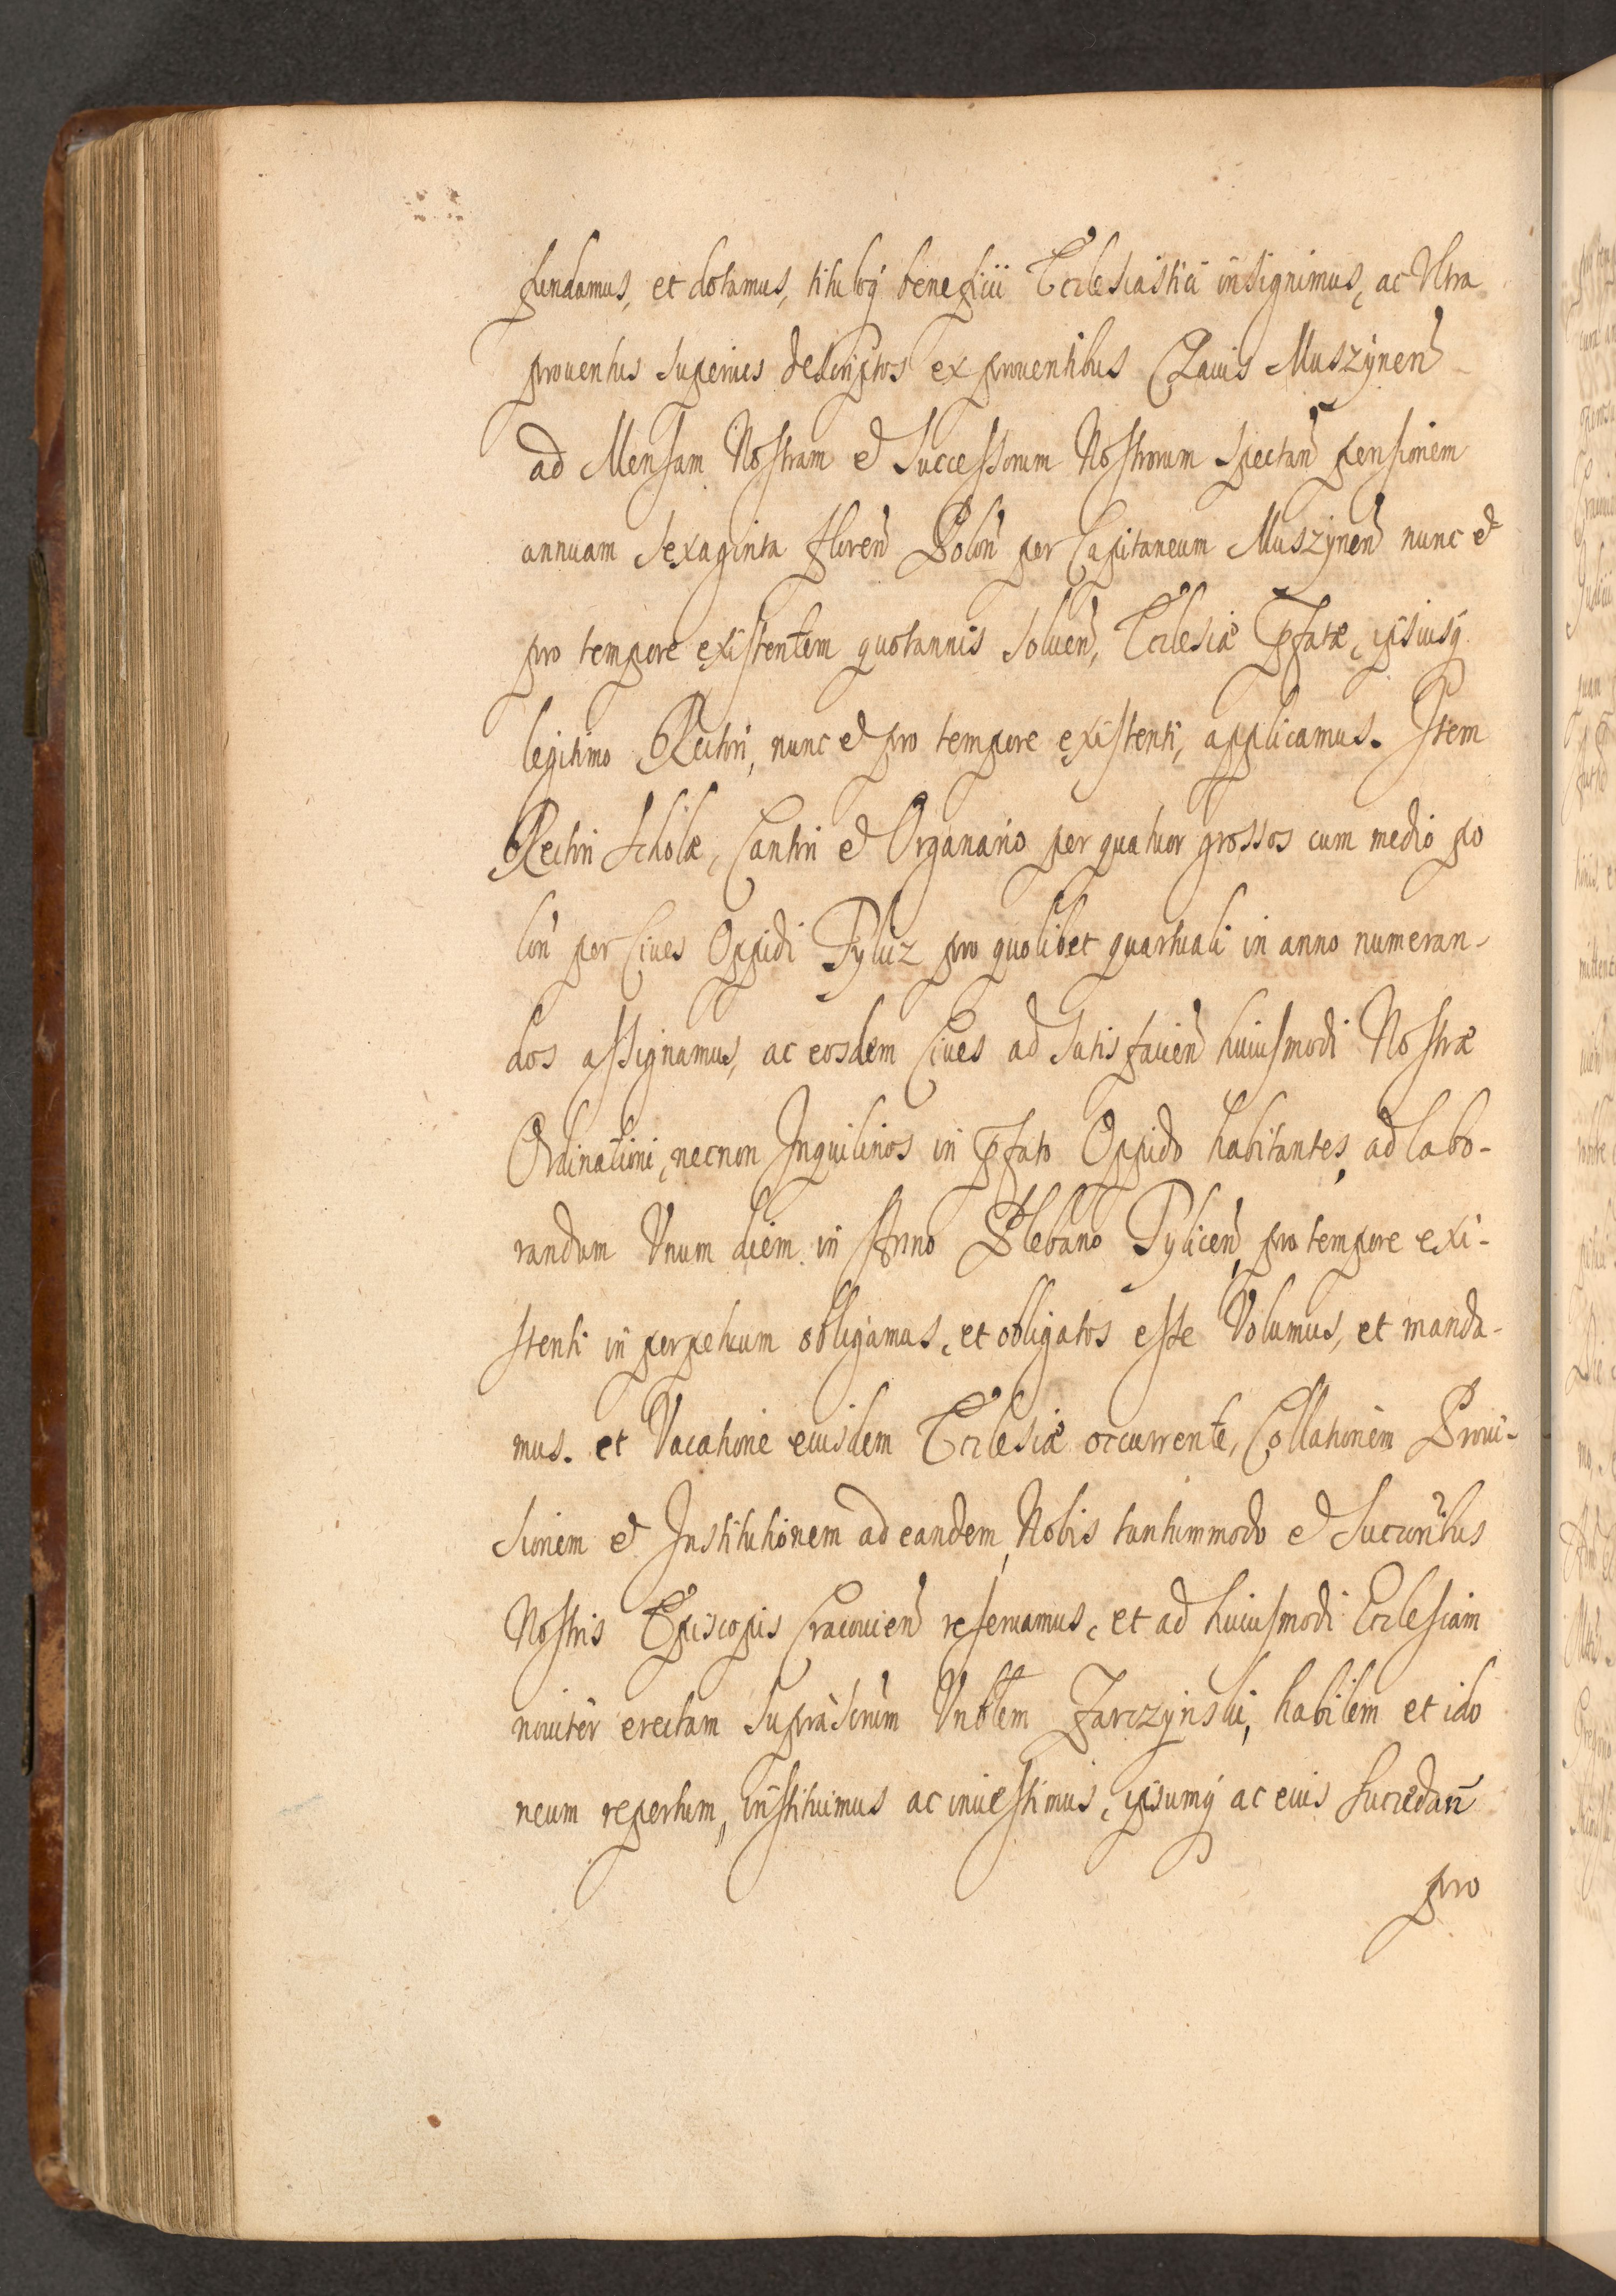 fundamus, et dotamus, tituloq́ beneficii Ecclesiastici insignimus, ac Vltra
prouentus superius descriptos ex prouentibus Clauis Muszÿnen̄
ad Mensam Nostram et Successorum Nostrorum spectan̄ pensionem
annuam sexaginta floren̄ Polon̄ per Capitaneum Muszÿnen̄ nunc et
pro tempore existentem quotannis soluen̄, Ecclesiæ Pfatæ, ipsiusq́
legitimo Rectori, nunc et pro tempore existenti, applicamus. Item
Rectori Scholæ, Cantori et Organario per quatuor grossos cum medio po
lon̄ per Ciues Oppidi Tylicz pro quolibet quartuali in anno numeran-
dos assignamus, ac eosdem Ciues ad satisfacien̄ huiusmodi Nostræ
Ordinationi, necnon Inquilinos in pfato Oppido habitantes, ad labo-
randum Vnum diem in Anno Plebano Tylicen̄, pro tempore exi-
stenti in perpetuum obligamus, et obligatos esse Volumus, et manda-
mus. et Vacatione eiusdem Ecclesiæ occurrente, Collationem Proui-
sionem et Institutionem ad eandem, Nobis tantummodo et Succoribus
Nostris Episcopis Cracouien̄ reseruamus, et ad huiusmodi Ecclesiam
nouiter erectam suprascrum Vnoblem Jarczynski, habilem et ido
neum repertum, instituimus ac inuestimus, ipsumq́ ac eius succedan̄
pro